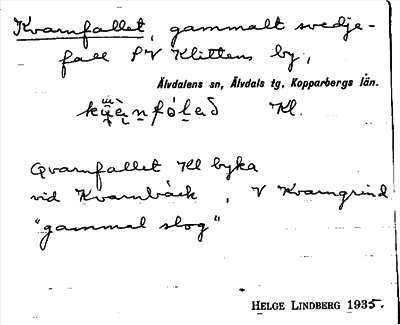 Kvarnfallet, gammalt svedje-
fall SV Klittens by,
Älvdalens sn, Älvdals tg, Kopparbergs län.
Kl.
Qvarnfallet Kl byka
vid Kvarnbäck, V Kvarngrind
"gammal slog"
HELGE LINDBERG 1935.